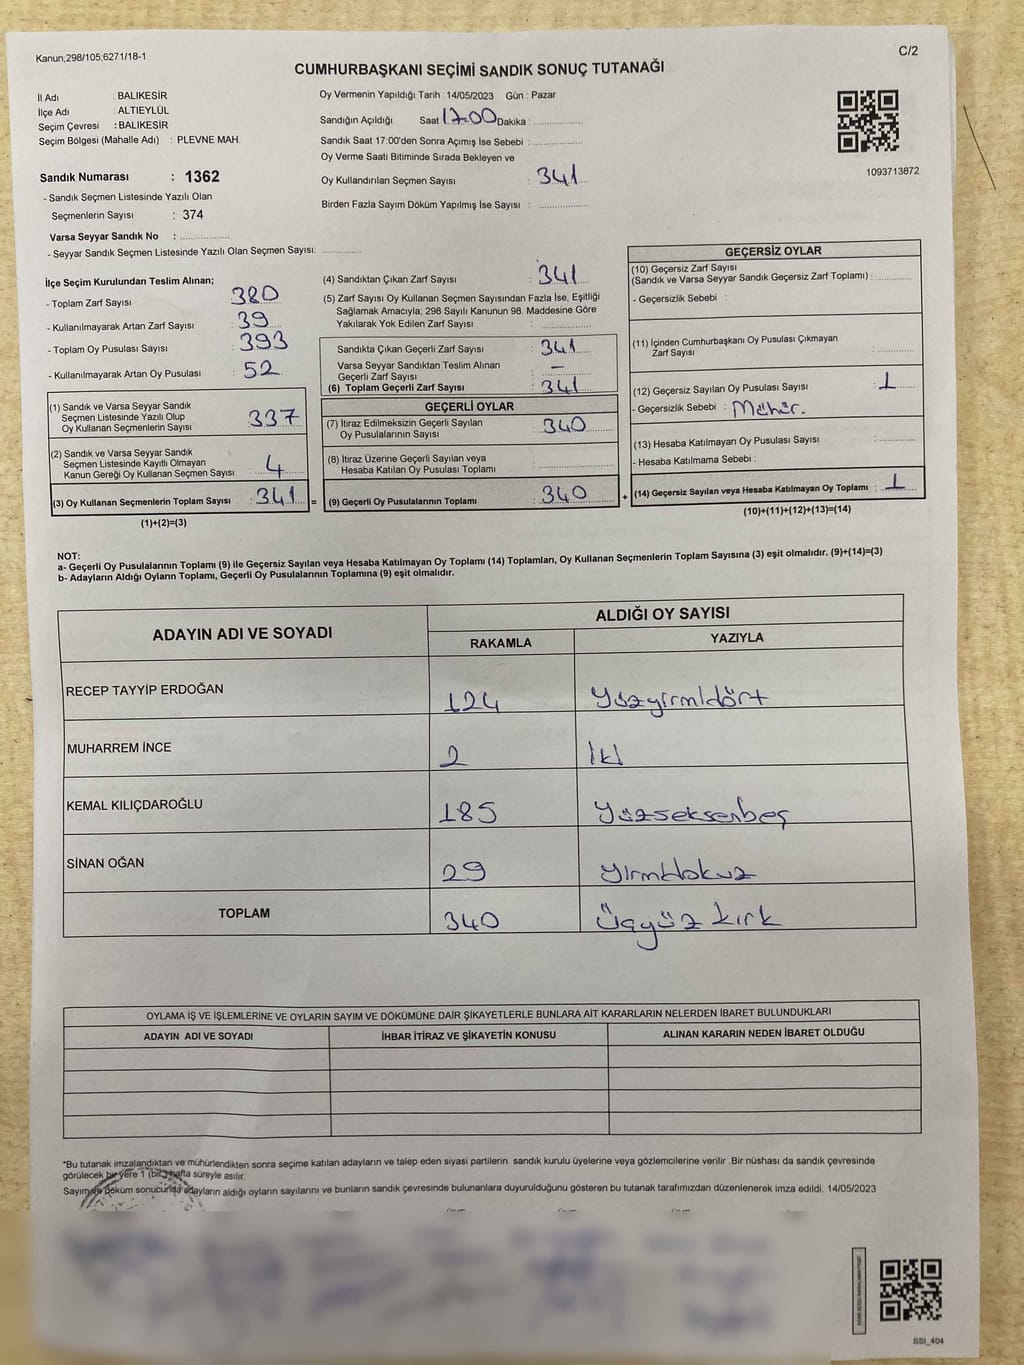 Kanun;298/105;6271/18-1
C/2
CUMHURBAŞKANI SEÇİMİ SANDIK SONUÇ TUTANAĞI
İl Adı : BALIKESİR
İlçe Adı : ALTIEYLÜL
Seçim Çevresi : BALIKESİR
Seçim Bölgesi (Mahalle Adı) : PLEVNE MAH.
Sandık Numarası : 1362
- Sandık Seçmen Listesinde Yazılı Olan
Seçmenlerin Sayısı : 374
Varsa Seyyar Sandık No :
- Seyyar Sandık Seçmen Listesinde Yazılı Olan Seçmen Sayısı:
Oy Vermenin Yapıldığı Tarih : 14/05/2023 Gün : Pazar
Sandığın Açıldığı Saat 17.00 Dakika :
Sandık Saat 17:00'den Sonra Açımış İse Sebebi :
Oy Verme Saati Bitiminde Sırada Bekleyen ve
Oy Kullandırılan Seçmen Sayısı : 341
Birden Fazla Sayım Döküm Yapılmış İse Sayısı :
1093713872
İlçe Seçim Kurulundan Teslim Alınan;
- Toplam Zarf Sayısı : 380
- Kullanılmayarak Artan Zarf Sayısı : 39
- Toplam Oy Pusulası Sayısı : 393
- Kullanılmayarak Artan Oy Pusulası : 52
(1) Sandık ve Varsa Seyyar Sandık
Seçmen Listesinde Yazılı Olup
Oy Kullanan Seçmenlerin Sayısı : 337
(2) Sandık ve Varsa Seyyar Sandık
Seçmen Listesinde Kayıtlı Olmayan
Kanun Gereği Oy Kullanan Seçmen Sayısı : 4
(3) Oy Kullanan Seçmenlerin Toplam Sayısı : 341 =
(1)+(2)=(3)
(4) Sandıktan Çıkan Zarf Sayısı : 341
(5) Zarf Sayısı Oy Kullanan Seçmen Sayısından Fazla İse, Eşitliği
Sağlamak Amacıyla; 298 Sayılı Kanunun 98. Maddesine Göre
Yakılarak Yok Edilen Zarf Sayısı :
Sandıkta Çıkan Geçerli Zarf Sayısı : 341
Varsa Seyyar Sandıktan Teslim Alınan
Geçerli Zarf Sayısı : —
(6) Toplam Geçerli Zarf Sayısı : 341
GEÇERLİ OYLAR
(7) İtiraz Edilmeksizin Geçerli Sayılan
Oy Pusulalarının Sayısı : 340
(8) İtiraz Üzerine Geçerli Sayılan veya
Hesaba Katılan Oy Pusulası Toplamı :
(9) Geçerli Oy Pusulalarının Toplamı : 340 +
GEÇERSİZ OYLAR
(10) Geçersiz Zarf Sayısı
(Sandık ve Varsa Seyyar Sandık Geçersiz Zarf Toplamı) :
- Geçersizlik Sebebi :
(11) İçinden Cumhurbaşkanı Oy Pusulası Çıkmayan
Zarf Sayısı :
(12) Geçersiz Sayılan Oy Pusulası Sayısı : 1
- Geçersizlik Sebebi : Mühür.
(13) Hesaba Katılmayan Oy Pusulası Sayısı :
- Hesaba Katılmama Sebebi :
(14) Geçersiz Sayılan veya Hesaba Katılmayan Oy Toplamı : 1
(10)+(11)+(12)+(13)=(14)
NOT:
a- Geçerli Oy Pusulalarının Toplamı (9) ile Geçersiz Sayılan veya Hesaba Katılmayan Oy Toplamı (14) Toplamları, Oy Kullanan Seçmenlerin Toplam Sayısına (3) eşit olmalıdır. (9)+(14)=(3)
b- Adayların Aldığı Oyların Toplamı, Geçerli Oy Pusulalarının Toplamına (9) eşit olmalıdır.
ADAYIN ADI VE SOYADI
ALDIĞI OY SAYISI
RAKAMLA YAZIYLA
RECEP TAYYİP ERDOĞAN 124 Yüzyirmidört
MUHARREM İNCE 2 İki
KEMAL KILIÇDAROĞLU 185 Yüzseksenbeş
SİNAN OĞAN 29 Yirmidokuz
TOPLAM 340 Üçyüz kırk
OYLAMA İŞ VE İŞLEMLERİNE VE OYLARIN SAYIM VE DÖKÜMÜNE DAİR ŞİKAYETLERLE BUNLARA AİT KARARLARIN NELERDEN İBARET BULUNDUKLARI
ADAYIN ADI VE SOYADI İHBAR İTİRAZ VE ŞİKAYETİN KONUSU ALINAN KARARIN NEDEN İBARET OLDUĞU
*Bu tutanak imzalandıktan ve mühürlendikten sonra seçime katılan adayların ve talep eden siyasi partilerin sandık kurulu üyelerine veya gözlemcilerine verilir .Bir nüshası da sandık çevresinde
görülecek bir yere 1 (bir) hafta süreyle asılır.
Sayım ve Döküm sonucunda adayların aldığı oyların sayılarını ve bunların sandık çevresinde bulunanlara duyurulduğunu gösteren bu tutanak tarafımızdan düzenlenerek imza edildi. 14/05/2023
SSI_404